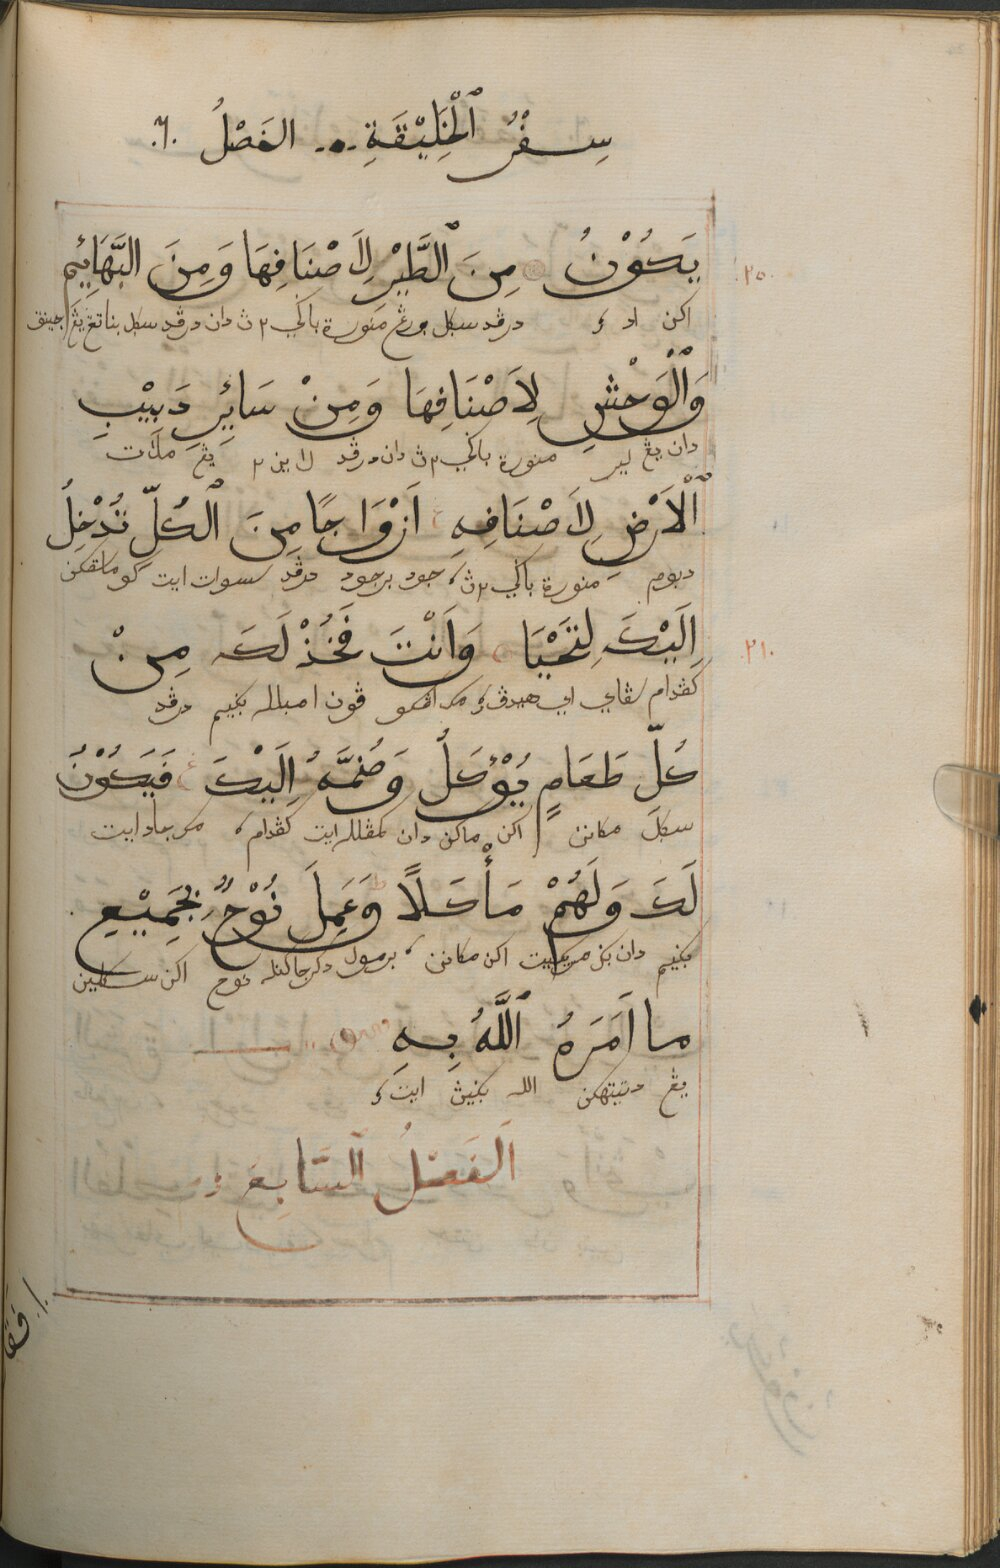 سِفْرُ ٱلْخَلِيْقَةِ الفَصْلُ ٦
٢٠
يَكُوْنُ مِنَ ٱلطَّيْرِ لِاَصْنَافِهَا وَمِنَ البَّهَائِمِ
اكن اد درڤد سكل بورڠ منورة باݢي٢ث دان درڤد سكل بناتڠ يڠ جينق
وَٱلْوَحْشِ لِاَصْنَافِهَا وَمِنْ سَائِرِ دَبِيْبِ
دان يڠ لير منورة باݢي٢ث دان درڤد لاين٢ يڠ ملات
ٱلْاَرْضِ لِاَصْنَافِهِ اَزْوَاجًا مِنَ ٱلْكُلِّ تُدْخِلُ
دبوم منورة باݢي٢ث جود برجود درڤد سسوات ايت كو ماسقكن
٢١
اِلَيْكَ لِتَحْيَا وَاَنْتَ فَخُذْ لَكَ مِنْ
كڤدام سڤاي اي هيدڤ مك اڠكو ڤون امبلله بݢيم درڤد
كُلِّ طَعَامٍ يُؤْكَلُ وَضُمَّهُ اِلَيْكَ فَيَكُوْنُ
سكل مكانن اكن ماكن دان كمڤللرايت كڤدام مك جاد ايت
لَكَ وَلَهُمْ مَأْكَلًا وَعَمِلَ نُوْحٌ بِجَمِيْعِ
بݢيم دان بݢ مريكيت اكن مكانن برمول دكرجاكنله نوح اكن سكلين
ما اَمَرَهُ ٱللَّهُ بِهِ
يڠ دتيتهكن الله بݢيڽ ايت
اَلفَصْلُ السَّابِعُ